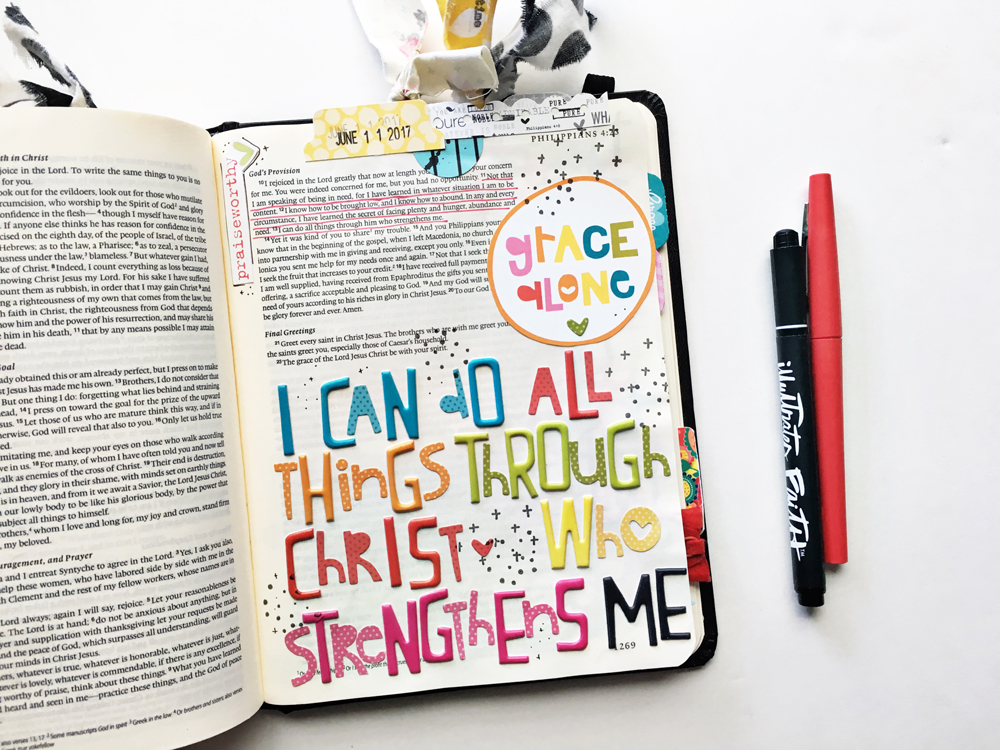 th in Christ
joice in the Lord. To write the same things to you is no
for you.
ook out for the evildoers, look out for those who mutilate
circumcision, who worship by the Spirit of God and glory
onfidence in the flesh— though I myself have reason for
. If anyone else thinks he has reason for confidence in the
cised on the eighth day, of the people of Israel, of the tribe
Hebrews; as to the law, a Pharisee; as to zeal, a persecutor
ousness under the law, blameless. But whatever gain I had,
ke of Christ. Indeed, I count everything as loss because of
nowing Christ Jesus my Lord. For his sake I have suffered
ount them as rubbish, in order that I may gain Christ and
ng a righteousness of my own that comes from the law, but
th in Christ, the righteousness from God that depends
ow him and the power of his resurrection, and may share
him in his death, 11 that by any means possible I may attain
e dead.
oal
ady obtained this or am already perfect, but I press on to make
st Jesus has made me his own. 13 Brothers, I do not consider that
But one thing I do: forgetting what lies behind and straining
head, 14 I press on toward the goal for the prize of the upward
sus. 15 Let those of us who are mature think this way, and if in
herwise, God will reveal that also to you. 16 Only let us hold true
ed.
mitating me, and keep your eyes on those who walk according
ve in us. 18 For many, of whom I have often told you and now tell
alk as enemies of the cross of Christ. 19 Their end is destruction,
and they glory in their shame, with minds set on earthly things.
is in heaven, and from it we await a Savior, the Lord Jesus Christ,
our lowly body to be like his glorious body, by the power that
subject all things to himself.
rothers, whom I love and long for, my joy and crown, stand firm
my beloved.
ouragement, and Prayer
a and I entreat Syntyche to agree in the Lord. 3 Yes, I ask you also,
elp these women, who have labored side by side with me in the
h Clement and the rest of my fellow workers, whose names are
Lord always; again I will say, rejoice. 5 Let your reasonableness be
The Lord is at hand; 6 do not be anxious about anything, but in
yer and supplication with thanksgiving let your requests be made
nd the peace of God, which surpasses all understanding, will guard
our minds in Christ Jesus.
ers, whatever is true, whatever is honorable, whatever is just, what-
ever is lovely, whatever is commendable, if there is any excellence, if
worthy of praise, think about these things. 9 What you have learned
heard and seen in me—practice these things, and the God of peace
praiseworthy
JUNE 1 1 2017
pure
NOBLE
PURE
PURE
WHA
PHILIPPIANS 4:
God's Provision
10 I rejoiced in the Lord greatly that now at length yo your concern
for me. You were indeed concerned for me, but you had no opportunity. 11 Not that
I am speaking of being in need, for I have learned in whatever situation I am to be
content. 12 I know how to be brought low, and I know how to abound. In any and every
circumstance, I have learned the secret of facing plenty and hunger, abundance and
need. 13 I can do all things through him who strengthens me.
14 Yet it was kind of you to share my trouble. 15 And you Philippians your
know that in the beginning of the gospel, when I left Macedonia, no church
into partnership with me in giving and receiving, except you only. 16 Even i
lonica you sent me help for my needs once and again. 17 Not that I seek the
I seek the fruit that increases to your credit. 18 I have received full payment
I am well supplied, having received from Epaphroditus the gifts you sent
offering, a sacrifice acceptable and pleasing to God. 19 And my God will s
need of yours according to his riches in glory in Christ Jesus. 20 To our God
be glory forever and ever. Amen.
Final Greetings
21 Greet every saint in Christ Jesus. The brothers who are with me greet you
the saints greet you, especially those of Caesar's household.
22 The grace of the Lord Jesus Christ be with your spirit.
grACE
alONE
I CAN dO ALL
THinGS THrOUGh
CHrIST WhO
STReNGthEnS ME
269
illustrated Faith